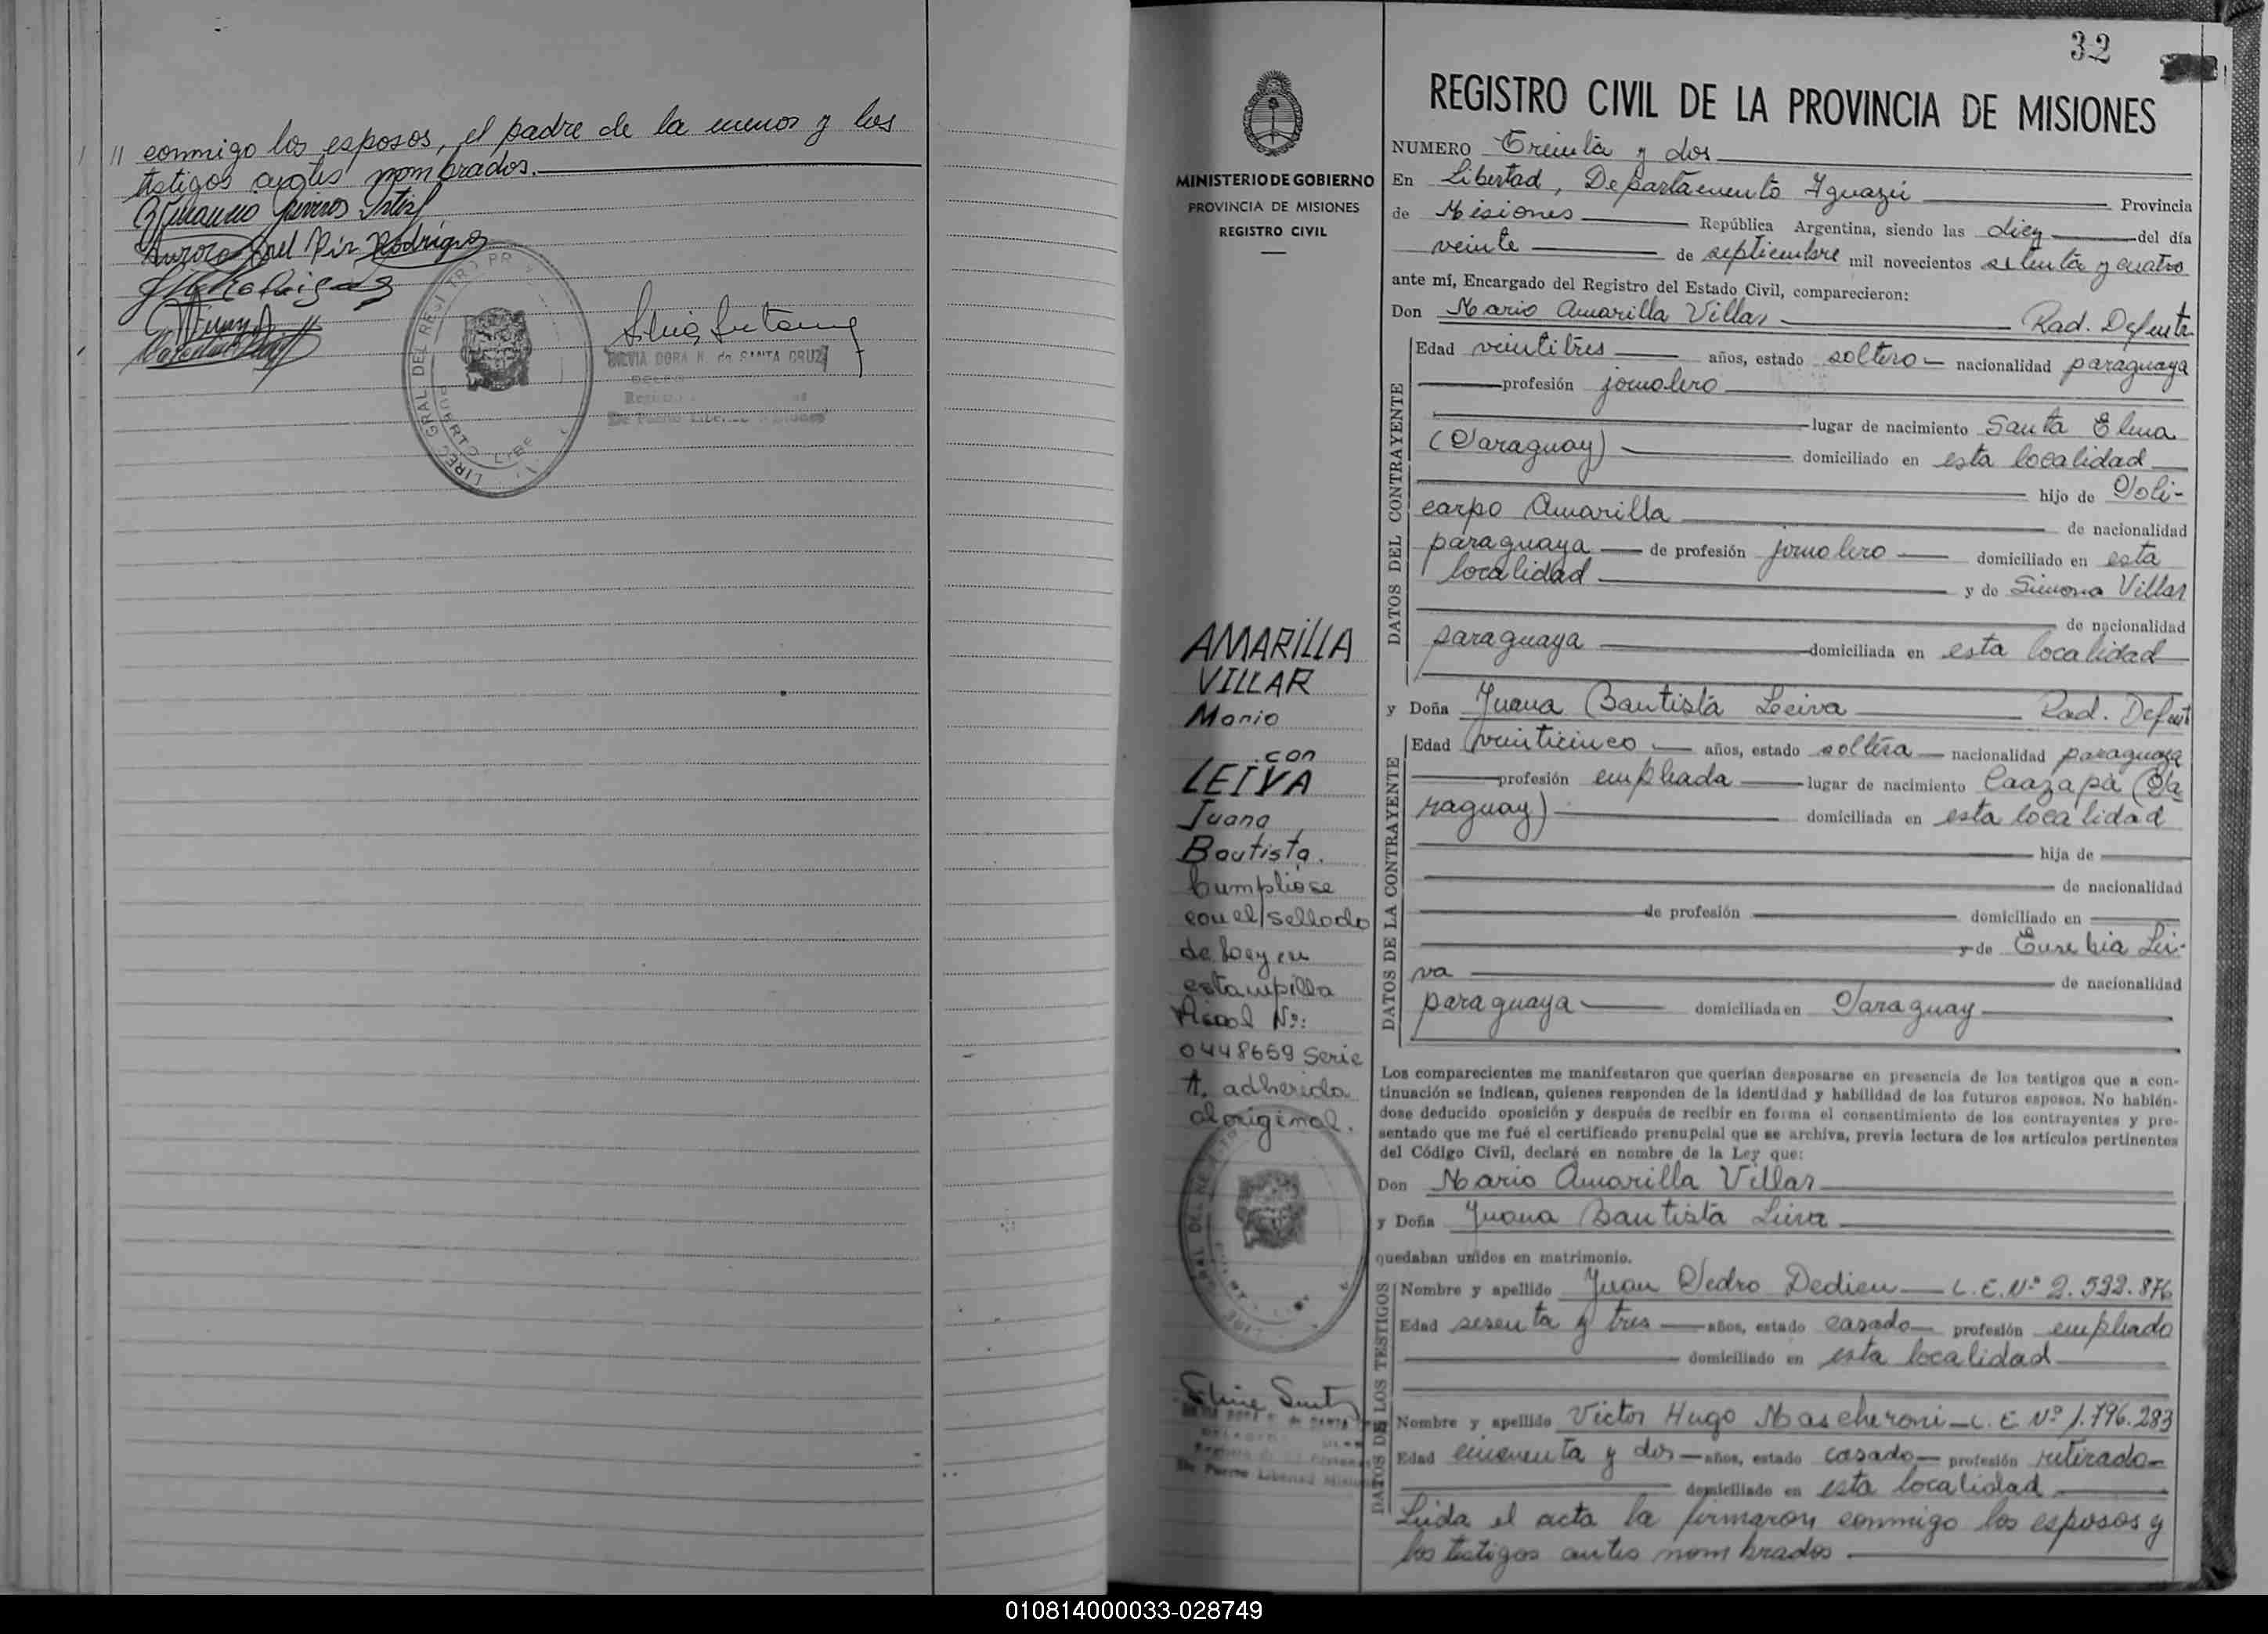 // conmigo los esposos, el padre de la menor y los
testigos antes nombrados.
SILVIA DORA N. de SANTA CRUZ
32
REGISTRO CIVIL DE LA PROVINCIA DE MISIONES
MINISTERIO DE GOBIERNO
PROVINCIA DE MISIONES
REGISTRO CIVIL
AMARILLA
VILLAR
Mario
con
LEIVA
Juana
Bautista.
Cumplióse
con el sellado
de Ley en
estampilla
fiscal Nº:
0448659 Serie
A. adherida
al original.
NUMERO Treinta y dos
En Libertad, Departamento Iguazú Provincia
de Misiones República Argentina, siendo las diez del día
veinte de septiembre mil novecientos setenta y cuatro
ante mí, Encargado del Registro del Estado Civil, comparecieron:
Don Mario Amarilla Villar Rad. Definit.
DATOS DEL CONTRAYENTE
Edad veintitres años, estado soltero nacionalidad paraguaya
profesión jornalero
lugar de nacimiento Santa Elena
(Paraguay) domiciliado en esta localidad
hijo de Poli-
carpo Amarilla de nacionalidad
paraguaya de profesión jornalero domiciliado en esta
localidad y de Simona Villar
de nacionalidad
paraguaya domiciliada en esta localidad
y Doña Juana Bautista Leiva Rad. Definit
DATOS DE LA CONTRAYENTE
Edad veinticinco años, estado soltera nacionalidad paraguaya
profesión empleada lugar de nacimiento Caazapá (Pa
raguay) domiciliada en esta localidad
hija de
de nacionalidad
de profesión domiciliado en
y de Eusebia Lei-
va de nacionalidad
paraguaya domiciliada en Paraguay
Los comparecientes me manifestaron que querían desposarse en presencia de los testigos que a con-
tinuación se indican, quienes responden de la identidad y habilidad de los futuros esposos. No habién-
dose deducido oposición y después de recibir en forma el consentimiento de los contrayentes y pre-
sentado que me fué el certificado prenupcial que se archiva, previa lectura de los artículos pertinentes
del Código Civil, declaré en nombre de la Ley que:
Don Mario Amarilla Villar
y Doña Juana Bautista Leiva
quedaban unidos en matrimonio.
DATOS DE LOS TESTIGOS
Nombre y apellido Juan Pedro Dedieu L.E. Nº 2.532.876
Edad sesenta y tres años, estado casado profesión empleado
domiciliado en esta localidad
Nombre y apellido Victor Hugo Mascheroni L.E Nº 1.796.283
Edad cincuenta y dos años, estado casado profesión retirado
domiciliado en esta localidad
Leída el acta la firmaron conmigo los esposos y
los testigos antes nombrados
010814000033-028749